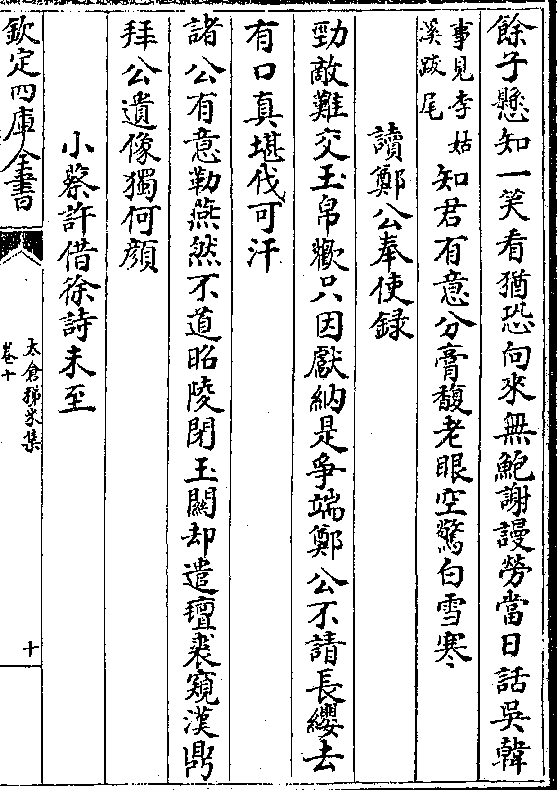 餘子懸知一笑看猶恐向來無鮑謝謾勞當日話吳韓
事見李姑
溪跋尾
知君有意分膏馥老眼空驚白雪寒
讀鄭公奉使録
勁敵難交玉帛歡只因獻納是爭端鄭公不請長纓去
有口真堪伐可汗
諸公有意勒燕然不道昭陵閉玉闗却遣氊裘窺漢鼎
拜公遺像獨何顔
小蔡許借徐詩未至
欽定四庫全書
太倉稊米集
卷十
十